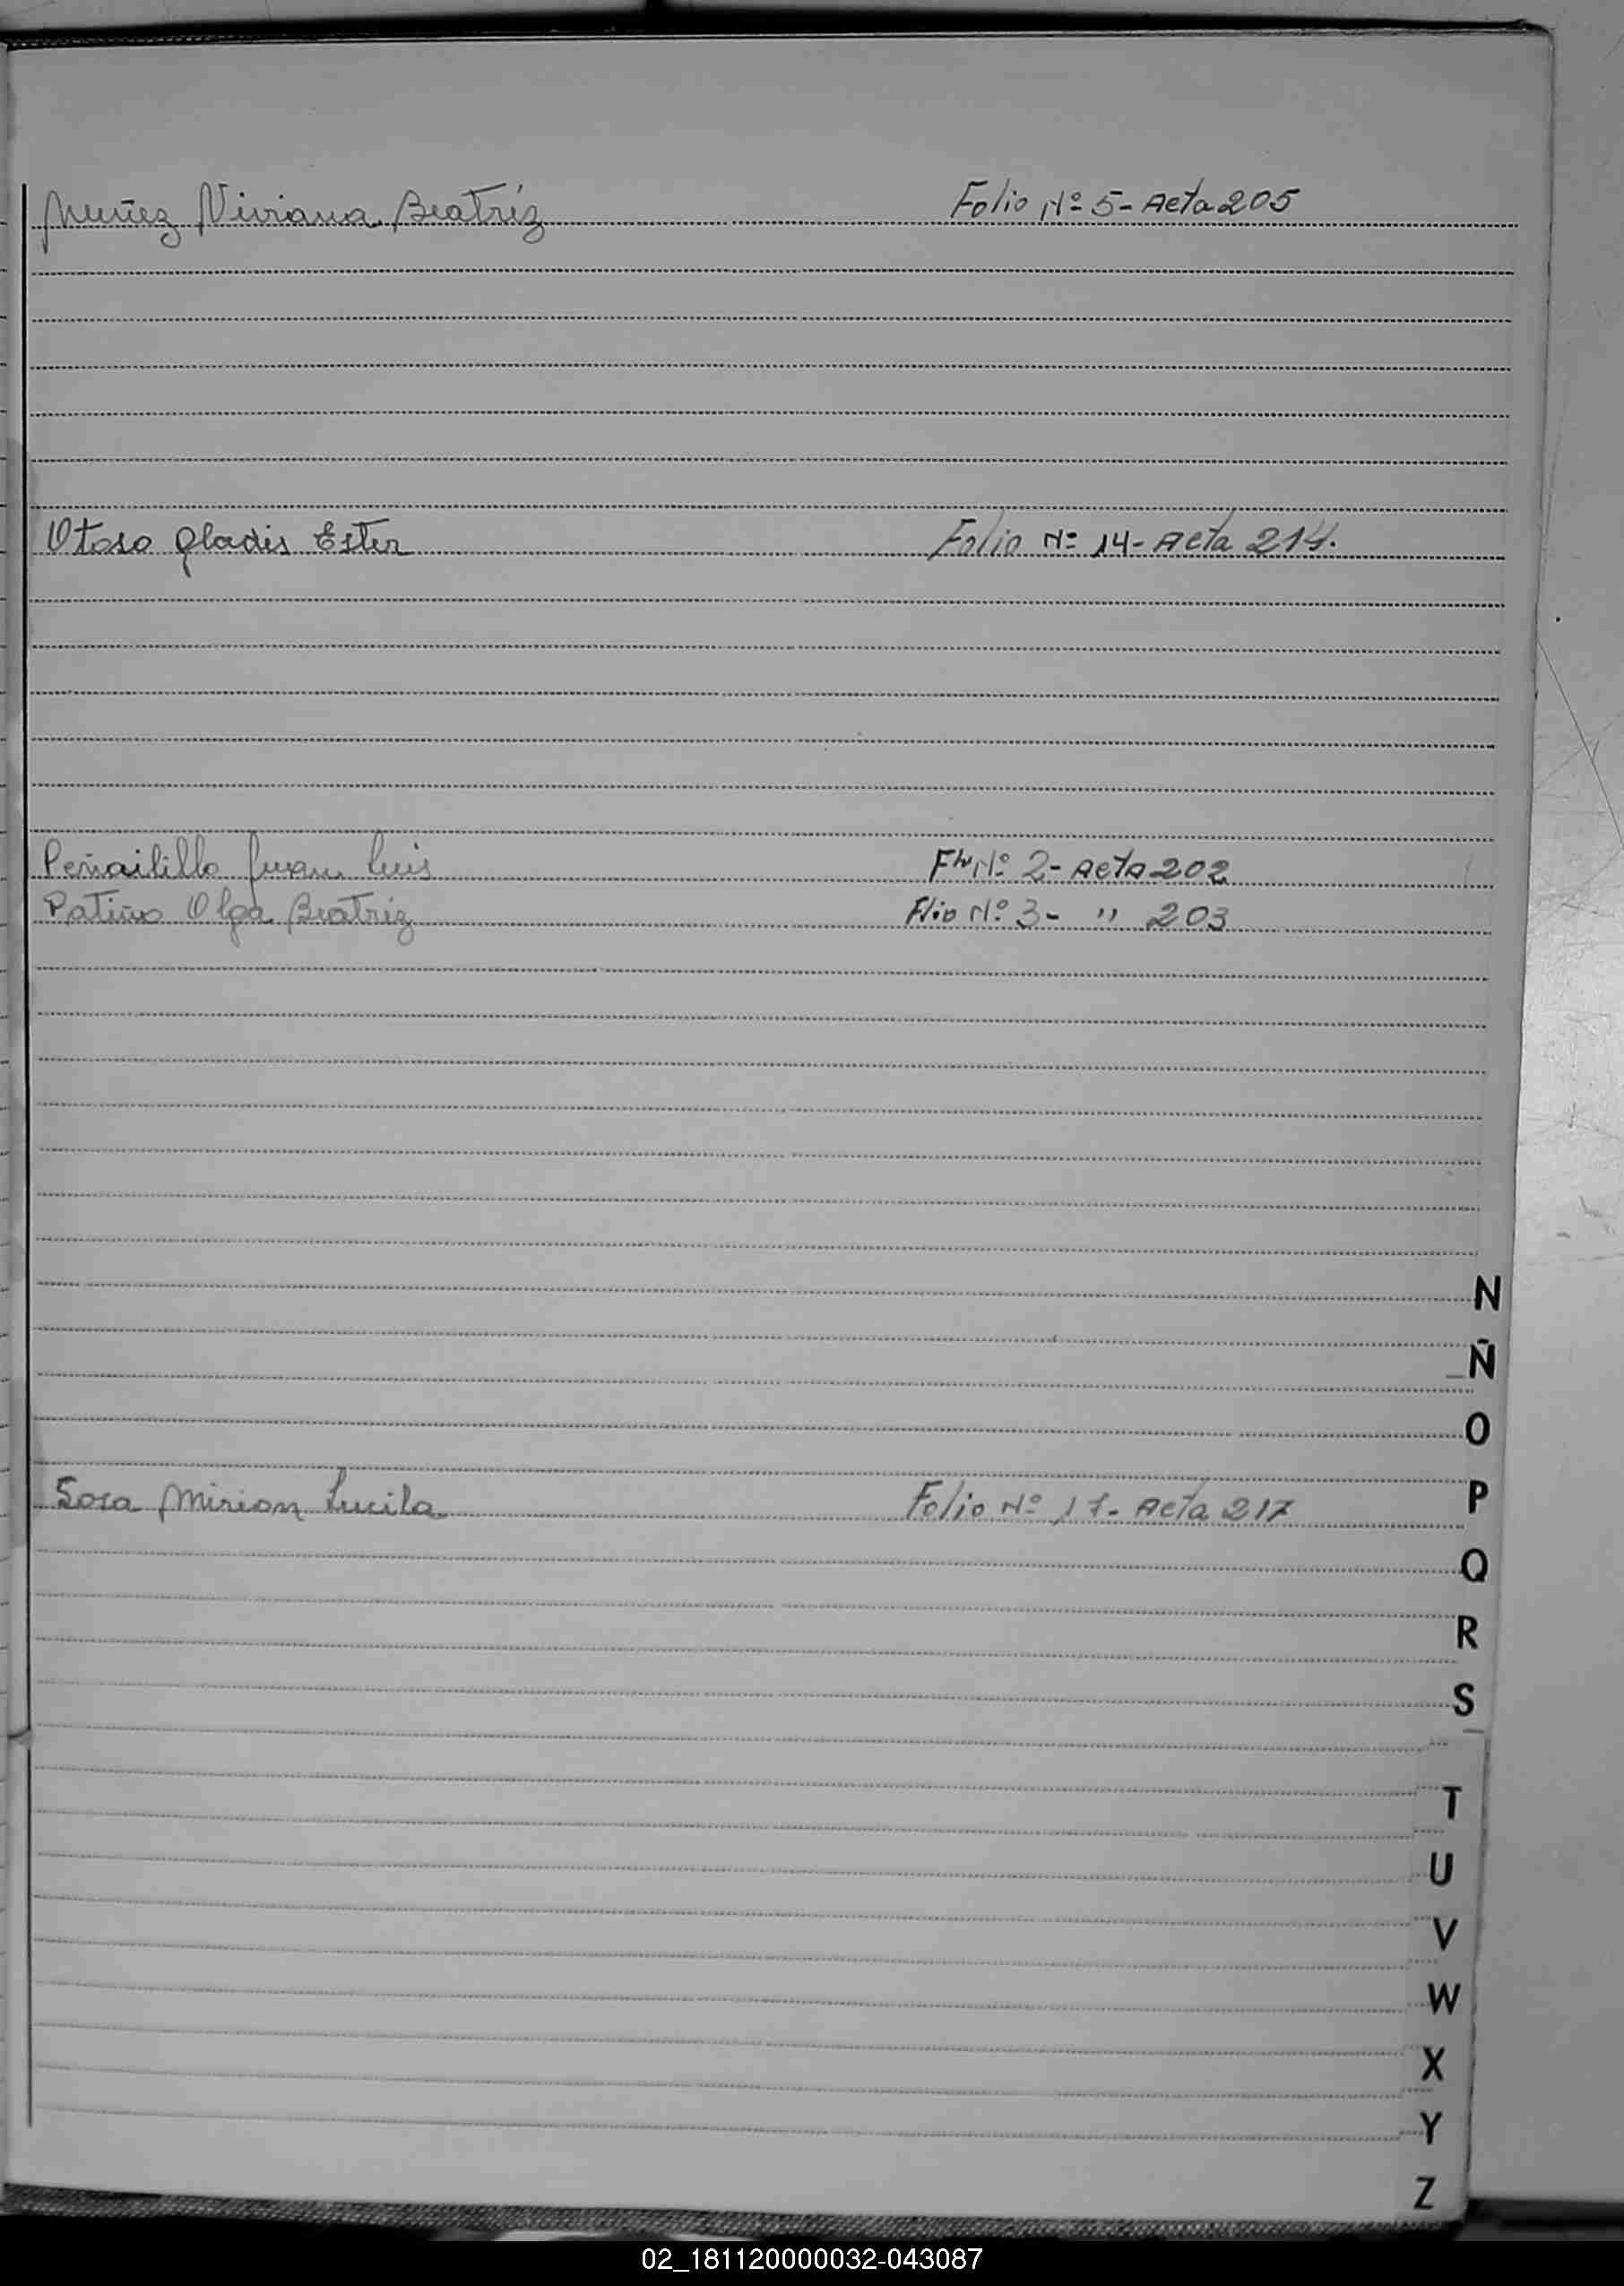 Nuñez Viviana Beatriz Folio Nº 5- Acta 205
Otoso Gladis Ester Folio Nº 14- Acta 214.
Peñailillo Juan Luis Flio Nº 2- Acta 202
Patiño Olga Beatriz Flio Nº 3- " 203
N
Ñ
O
Sosa Mirian Lucila Folio Nº 17- Acta 217
P
Q
R
S
T
U
V
W
X
Y
Z
02_181120000032-043087